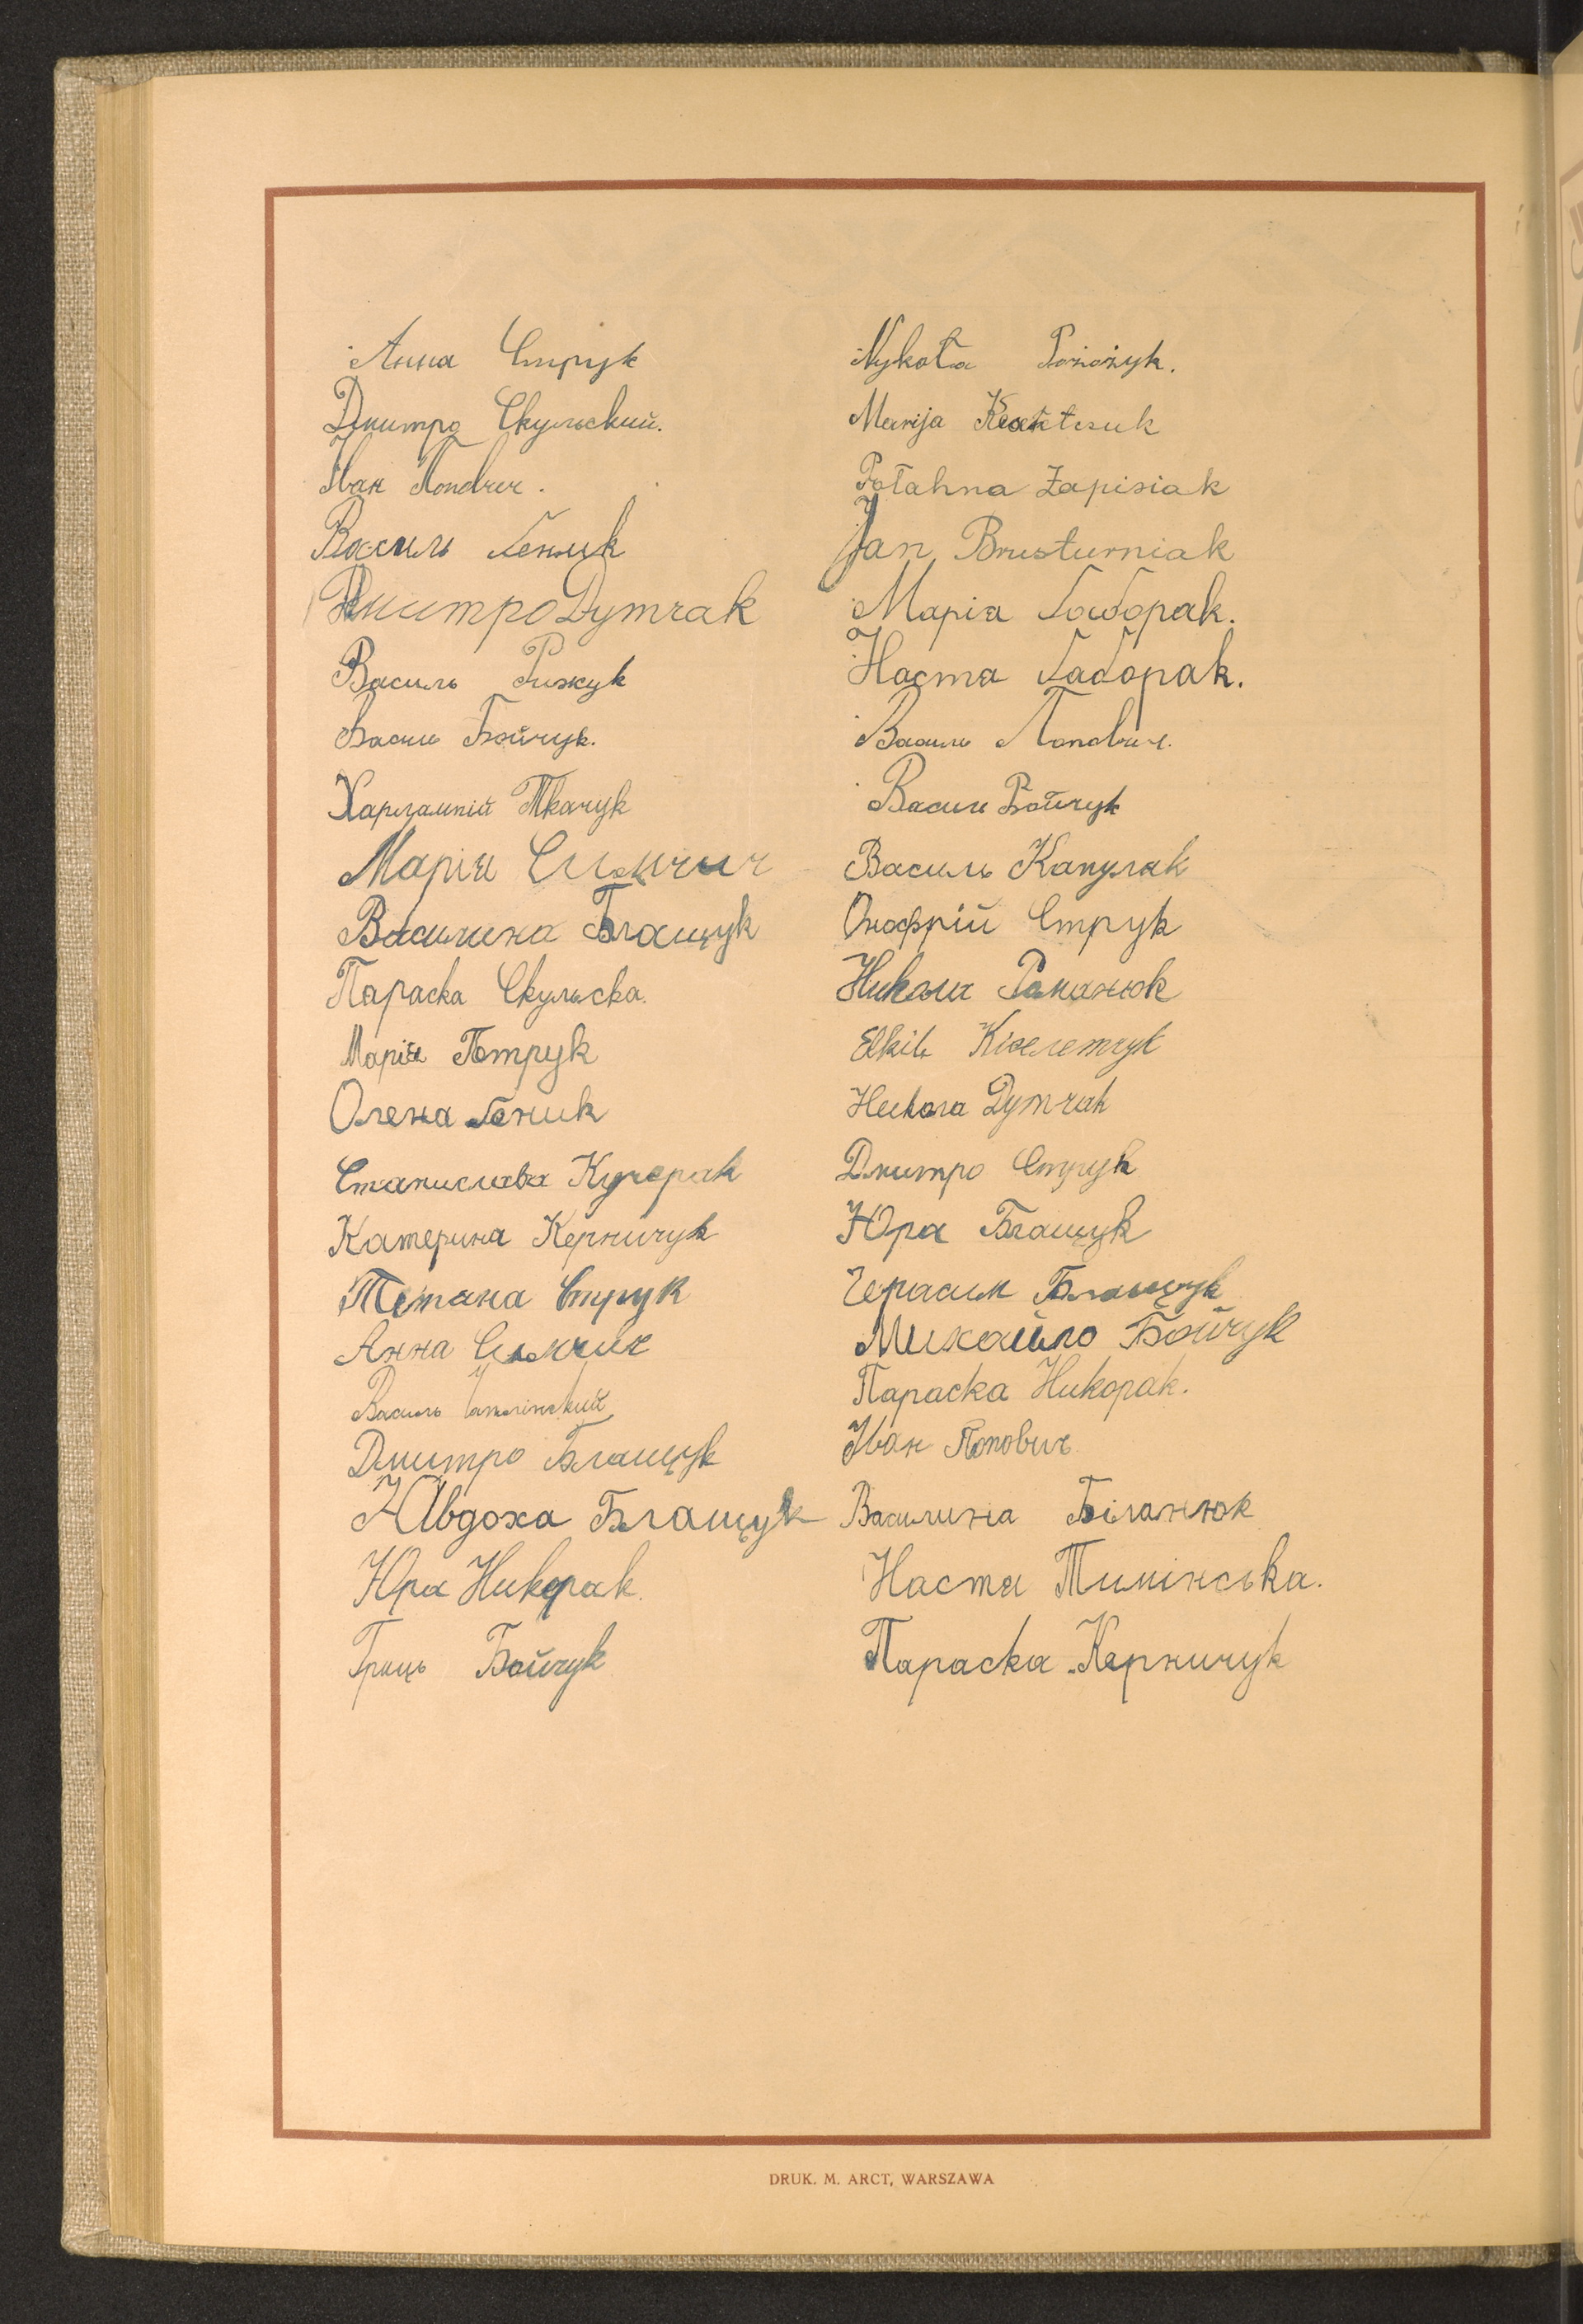 Анна Струк
Дмитро Скульский.
Іван Попович.
Василь Геник
Дмитро Дутчак
Василь Рижук
Василь Бойчук.
Харлампій Ткачук
Марія Симчич
Василина Блащук
Параска Скульска.
Марія Петрук
Олена Геник
Станислава Кучерак
Катерина Керничук
Тетяна Струк
Анна Симчич
Василь
Дмитро Блащук
Явдоха Блащук
Юра Никорак.
Гриць Бойчук
Mykoła
Marija
Połahna Zapisiak
Jan Brusturniak
Марія Габорак.
Наста Габорак.
Василь Попович.
Василь Бойчук
Василь Капулак
Онофрій Струк
Никола Романюк
Никола Дутчак
Дмитро Струк
Юра Блащук
Герасим Блащук
Михайло Бойчук
Параска Никорак.
Іван Попович
Василина Біланюк
Наста Тимінська.
Параска Керничук
DRUK. M. ARCT, WARSZAWA